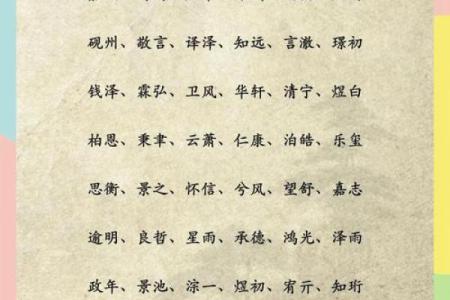 砚州、敬言、译泽、知远、言澈、璟初
钱泽、霖弘、卫风、华轩、清宁、煜白
柏恩、秉聿、云萧、仁康、泊皓、乐玺
思衡、景之、怀信、兮风、望舒、嘉志
逾明、良哲、星雨、承德、鸿光、泽雨
政年、景池、淙一、煜初、宥亓、知珩